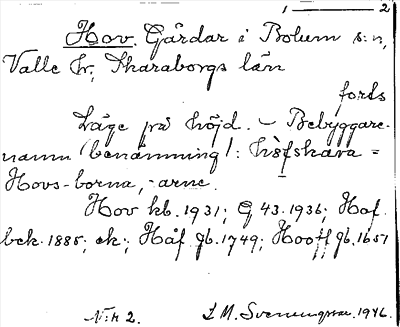 1 — 2
Hov. Gårdar i Bolum s:n,
Valle hr, Skaraborgs län
forts
Läge på höjd. – Bebyggare-
namn (benämning): håfskara =
Hovs-borna, -arne.
Hov kb. 1931; G 43. 1936; Hof.
bek. 1885, ek.; Håf jb. 1749; Hooff jb. 1651
N:r 2. L M. Svenungsson. 1946.